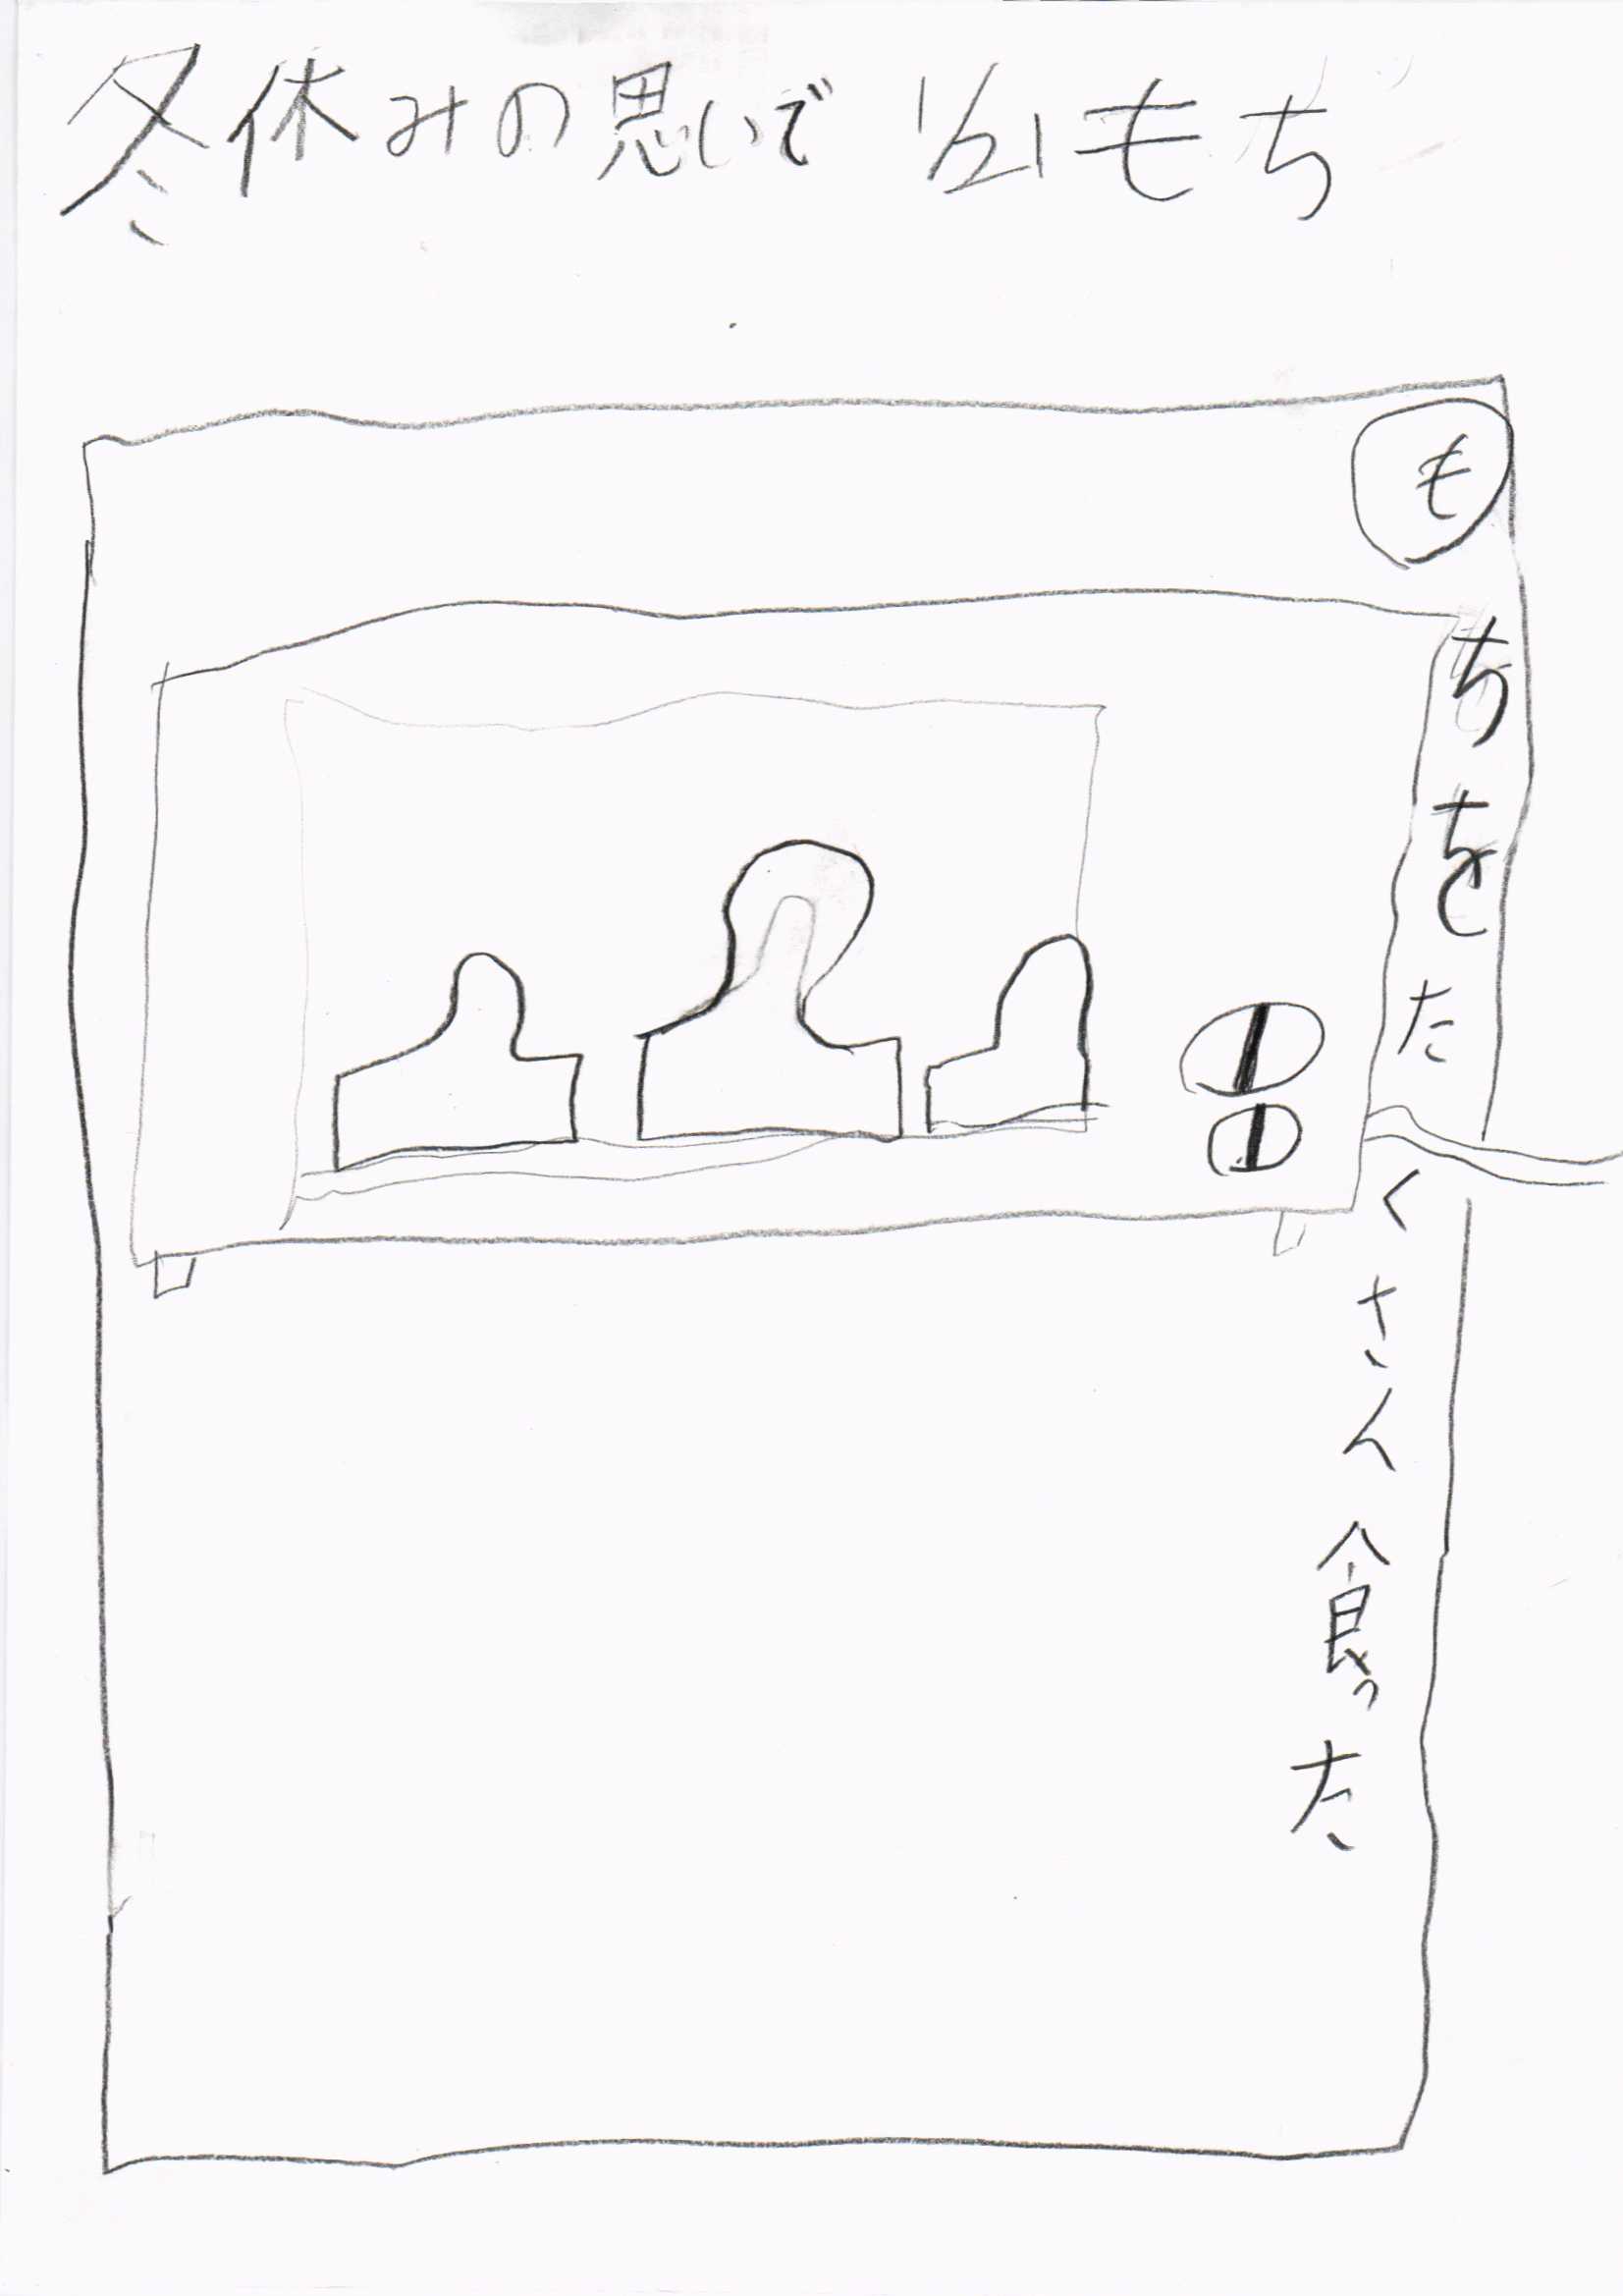 冬休みの思いで 1/21もち
もちをたくさん食った